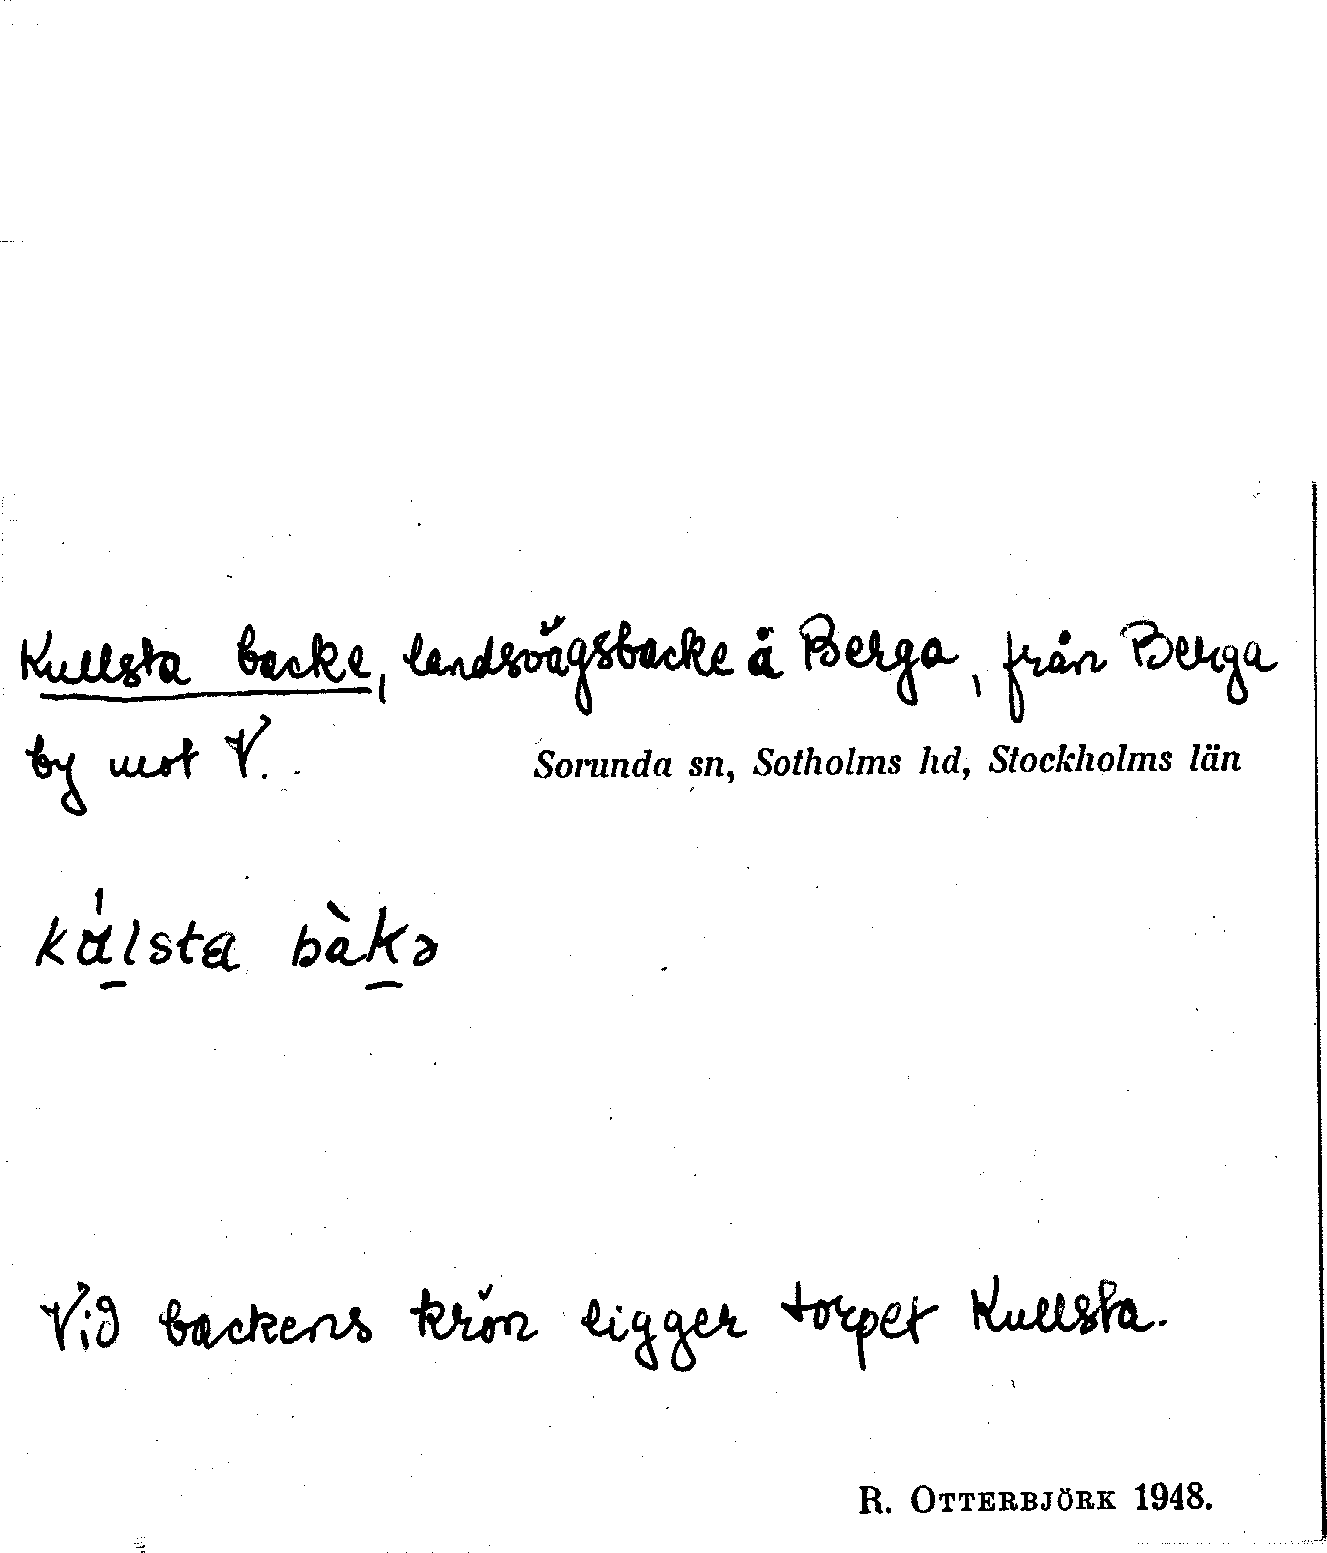 Kullsta backe, landsvägsbacke å Berga, från Berga
by mot V. Sorunda sn, Sotholms hd, Stockholms län
bàkə
Vid backens krön ligger torpet Kullsta.
R. OTTERBJÖRK 1948.